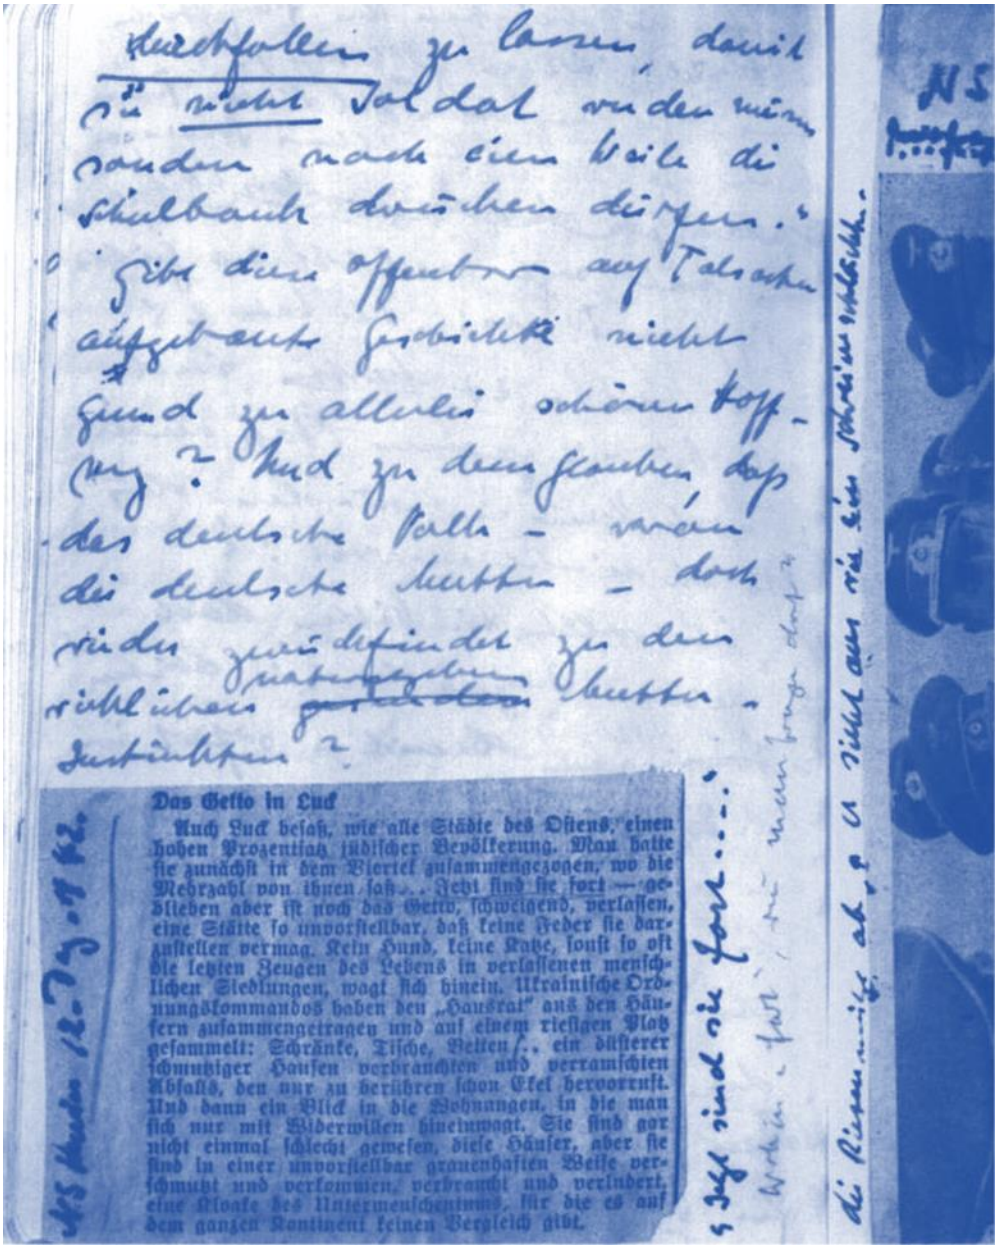 durchfallen zu lassen, damit
sie nicht Soldat werden müssen
sondern noch eine Weile die
Schulbank drücken dürfen."
Gibt diese offenbar auf Tatsachen
aufgebaute Geschichte nicht
Grund zu allerlei schönen Hoff-
nung? Und zu dem Glauben, daß
das deutsche Volk – voran
die deutsche Mutter – doch
wieder zurückfindet zu den
wirklichen naturgegebenen Mutter-
Instinkten?
Das Getto in Luck
Auch Luck besaß, wie alle Städte des Ostens, einen
hohen Prozentsatz jüdischer Bevölkerung. Man hatte
sie zunächst in dem Viertel zusammengezogen, wo die
Mehrzahl von ihnen saß... Jetzt sind sie fort — ge-
blieben aber ist noch das Getto, schweigend, verlassen,
eine Stätte so unvorstellbar, daß keine Feder sie dar-
zustellen vermag. Kein Hund, keine Katze, sonst so oft
die letzten Zeugen des Lebens in verlassenen mensch-
lichen Siedlungen, wagt sich hinein. Ukrainische Ord-
nungskommandos haben den „Hausrat" aus den Häu-
sern zusammengetragen und auf einem riesigen Platz
gesammelt: Schränke, Tische, Betten... ein düsterer
schmutziger Haufen verbrauchten und verramschten
Abfalls, den nur zu berühren schon Ekel hervorruft.
Und dann ein Blick in die Wohnungen, in die man
sich nur mit Widerwillen hineinwagt. Sie sind gar
nicht einmal schlecht gewesen, diese Häuser, aber sie
sind in einer unvorstellbar grauenhaften Weise ver-
schmutzt und verkommen, verbraucht und verludert,
eine Kloake des Untermenschentums, für die es auf
dem ganzen Kontinent keinen Vergleich gibt.
„Jetzt sind sie fort....."
Wohin – fort, wenn man fragen darf?
die Riesenmütze ab,
sieht aus wie ein
NS